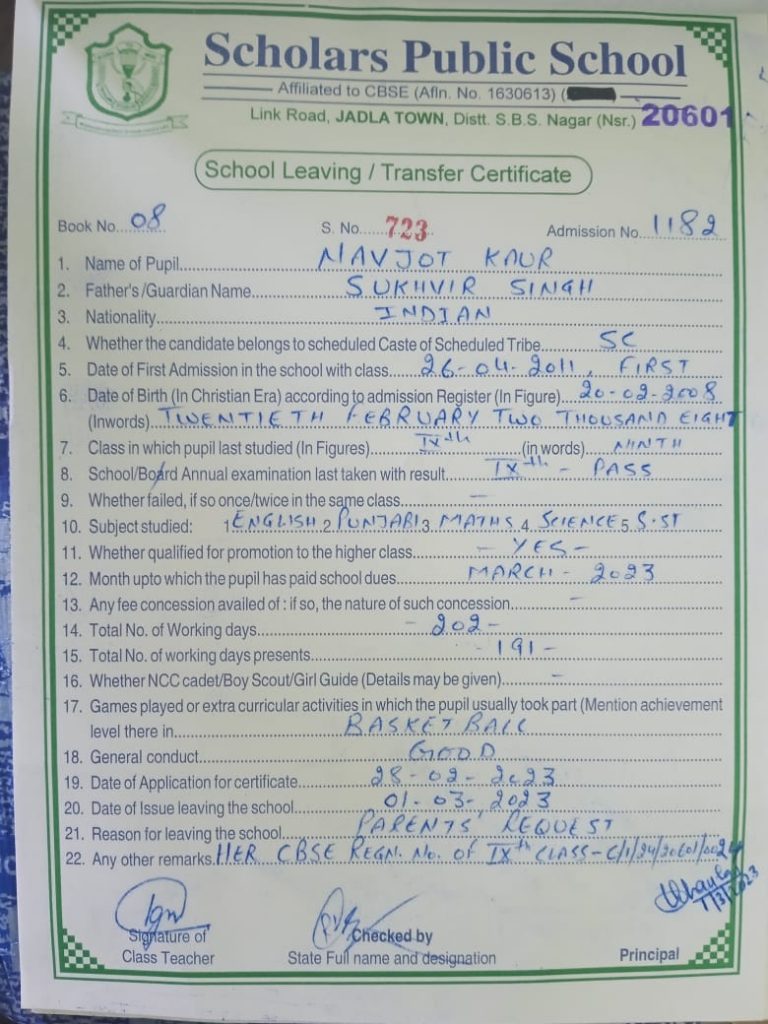 Scholars Public School
Affiliated to CBSE (Afln. No. 1630613) (
Link Road, JADLA TOWN, Distt. S.B.S. Nagar (Nsr.) 20601
School Leaving / Transfer Certificate
Book No. 08 S. No. 723 Admission No. 1182
1. Name of Pupil NAVJOT KAUR
2. Father's /Guardian Name SUKHVIR SINGH
3. Nationality INDIAN
4. Whether the candidate belongs to scheduled Caste of Scheduled Tribe SC
5. Date of First Admission in the school with class 26-04-2011, FIRST
6. Date of Birth (In Christian Era) according to admission Register (In Figure) 20-02-2008
(Inwords) TWENTIETH FEBRUARY TWO THOUSAND EIGHT
7. Class in which pupil last studied (In Figures) IXth (in words) NINTH
8. School/Board Annual examination last taken with result IXth - PASS
9. Whether failed, if so once/twice in the same class -
10. Subject studied: 1 ENGLISH 2 PUNJABI 3 MATHS 4 SCIENCE 5 S.ST
11. Whether qualified for promotion to the higher class - YES -
12. Month upto which the pupil has paid school dues MARCH - 2023
13. Any fee concession availed of : if so, the nature of such concession -
14. Total No. of Working days - 202 -
15. Total No. of working days presents - 191 -
16. Whether NCC cadet/Boy Scout/Girl Guide (Details may be given) -
17. Games played or extra curricular activities in which the pupil usually took part (Mention achievement
level there in BASKET BALL
18. General conduct GOOD
19. Date of Application for certificate 28-02-2023
20. Date of Issue leaving the school 01-03-2023
21. Reason for leaving the school PARENTS' REQUEST
22. Any other remarks HER CBSE REGN. No. of IXth CLASS - C/1/24/20601/0024
1/3/2023
Signature of
Class Teacher
Checked by
State Full name and designation
Principal